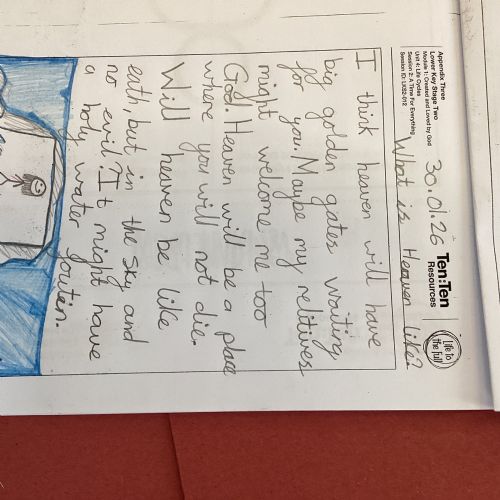 Appendix Three
Lower Key Stage Two
Module 1: Created and Loved by God
Unit 4: Life Cycles
Session 2: A Time For Everything
Session ID: LKS2-012
30.01.26
Ten:Ten
Resources
Life to
the full
What is Heaven like?
I think heaven will have
big golden gates waiting
for you. Maybe my relitives
might welcome me too
God. Heaven will be a place
where you will not die.
Will heaven be like
eath, but in the sky and
no evil? It might have
a holy water fountein.